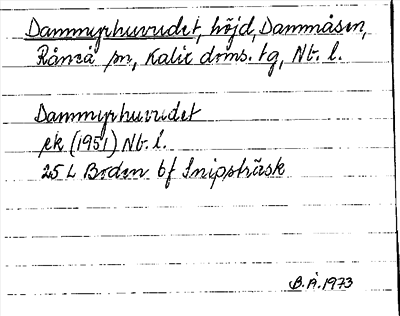 Dammyrhuvudet, höjd, Dammåsen,
Råneå sn, Kalix doms. tg, Nb. l.
Dammyrhuvudet
ek (1951) Nb. l.
25 L Boden bf Snipsträsk
B.Å. 1973